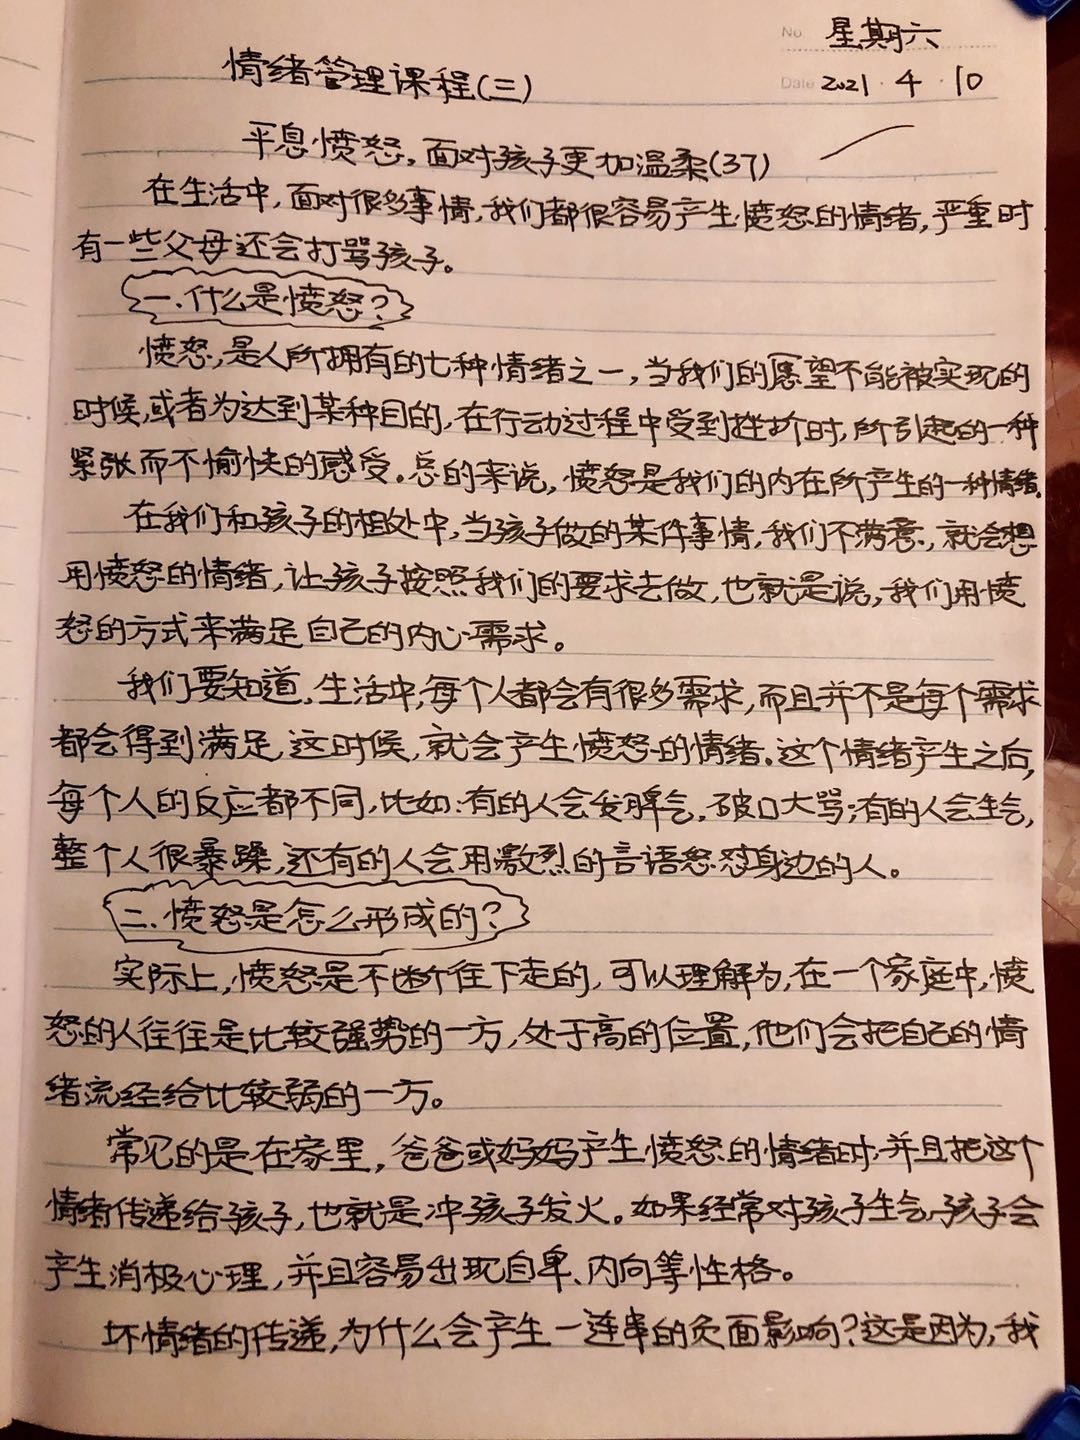 No 星期六
情绪管理课程(三)
Date 2021.4.10
平息愤怒,面对孩子更加温柔(37)
在生活中,面对很多事情,我们都很容易产生愤怒的情绪,严重时
有一些父母还会打骂孩子。
一.什么是愤怒?
愤怒,是人所拥有的七种情绪之一,当我们的愿望不能被实现的
时候,或者为达到某种目的,在行动过程中受到挫折时,所引起的一种
紧张而不愉快的感受。总的来说,愤怒是我们的内在所产生的一种情绪。
在我们和孩子的相处中,当孩子做的某件事情,我们不满意,就会想
用愤怒的情绪,让孩子按照我们的要求去做,也就是说,我们用愤
怒的方式来满足自己的内心需求。
我们要知道,生活中,每个人都会有很多需求,而且并不是每个需求
都会得到满足,这时候,就会产生愤怒的情绪。这个情绪产生之后,
每个人的反应都不同,比如:有的人会发脾气,破口大骂;有的人会生气,
整个人很暴躁,还有的人会用激烈的言语怒怼身边的人。
二.愤怒是怎么形成的?
实际上,愤怒是不断往下走的,可以理解为,在一个家庭中,愤
怒的人往往是比较强势的一方,处于高的位置,他们会把自己的情
绪流经给比较弱的一方。
常见的是在家里,爸爸或妈妈产生愤怒的情绪时,并且把这个
情绪传递给孩子,也就是冲孩子发火。如果经常对孩子生气,孩子会
产生消极心理,并且容易出现自卑、内向等性格。
坏情绪的传递,为什么会产生一连串的负面影响?这是因为,我